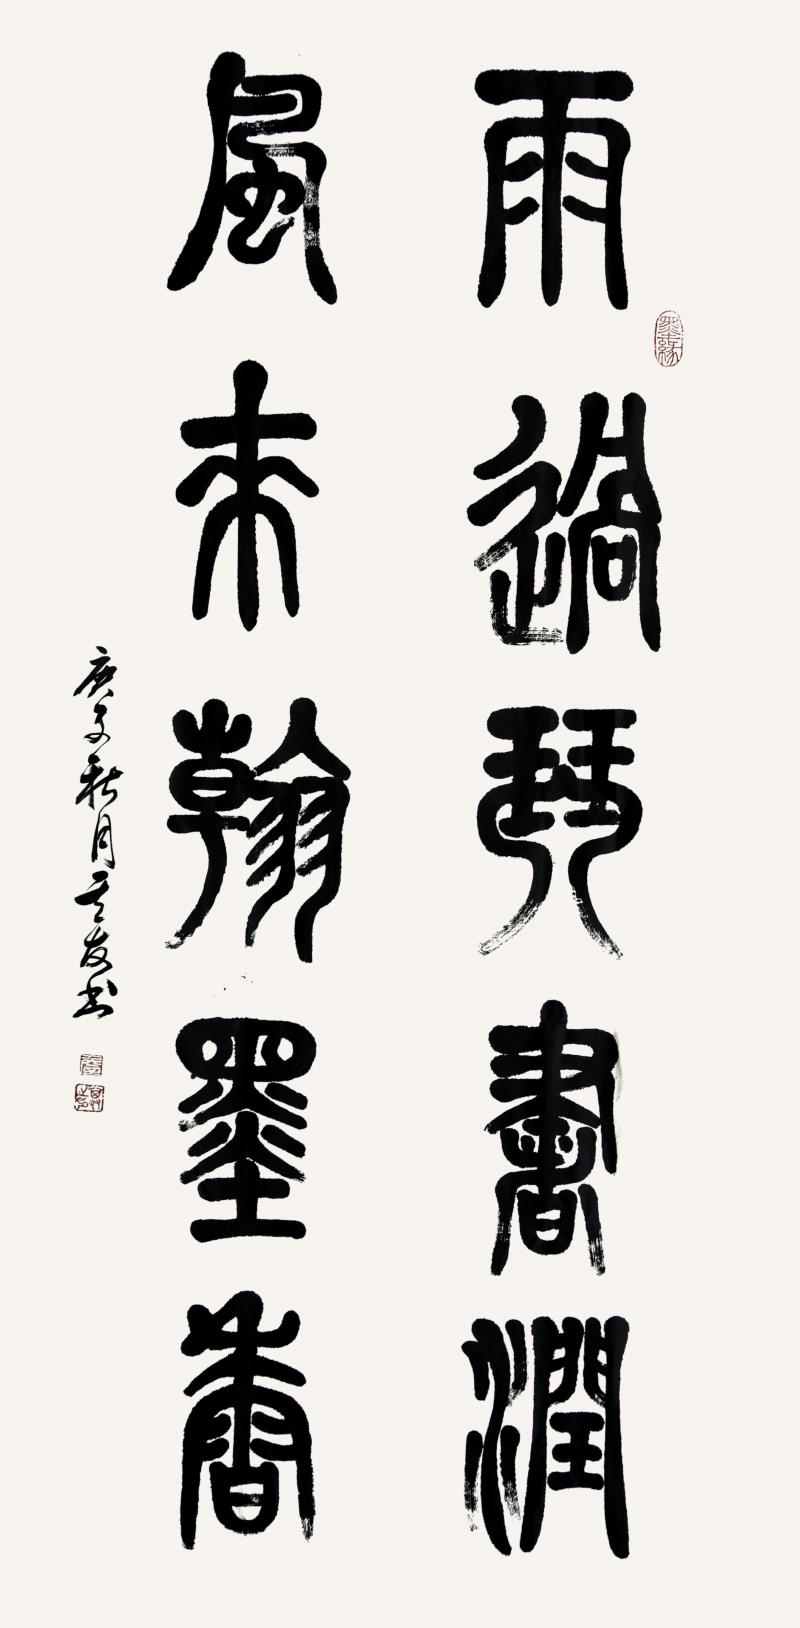 雨過琴書潤
風來翰墨香
庚子秋月
友書
墨緣